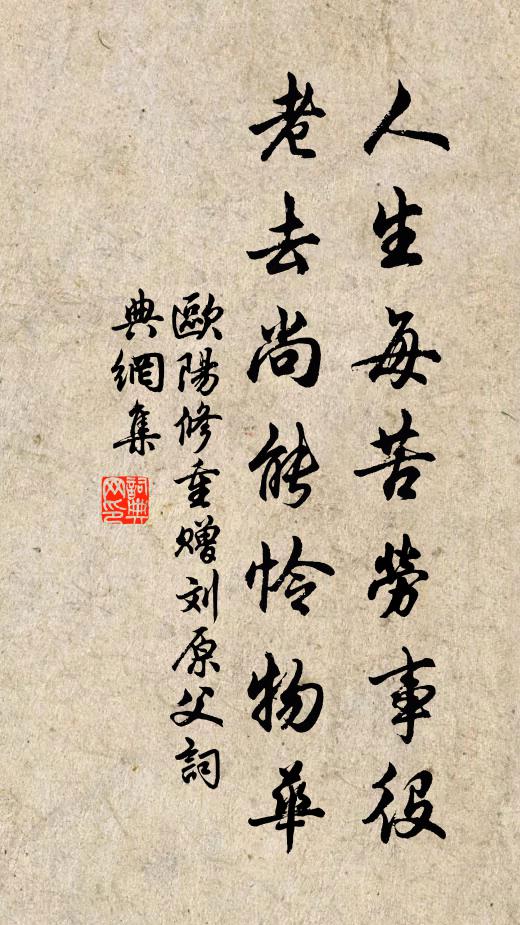 人生每苦勞事役
老去尚能怜物華
歐陽修重赠刘原父詞
典網集
詞典网印